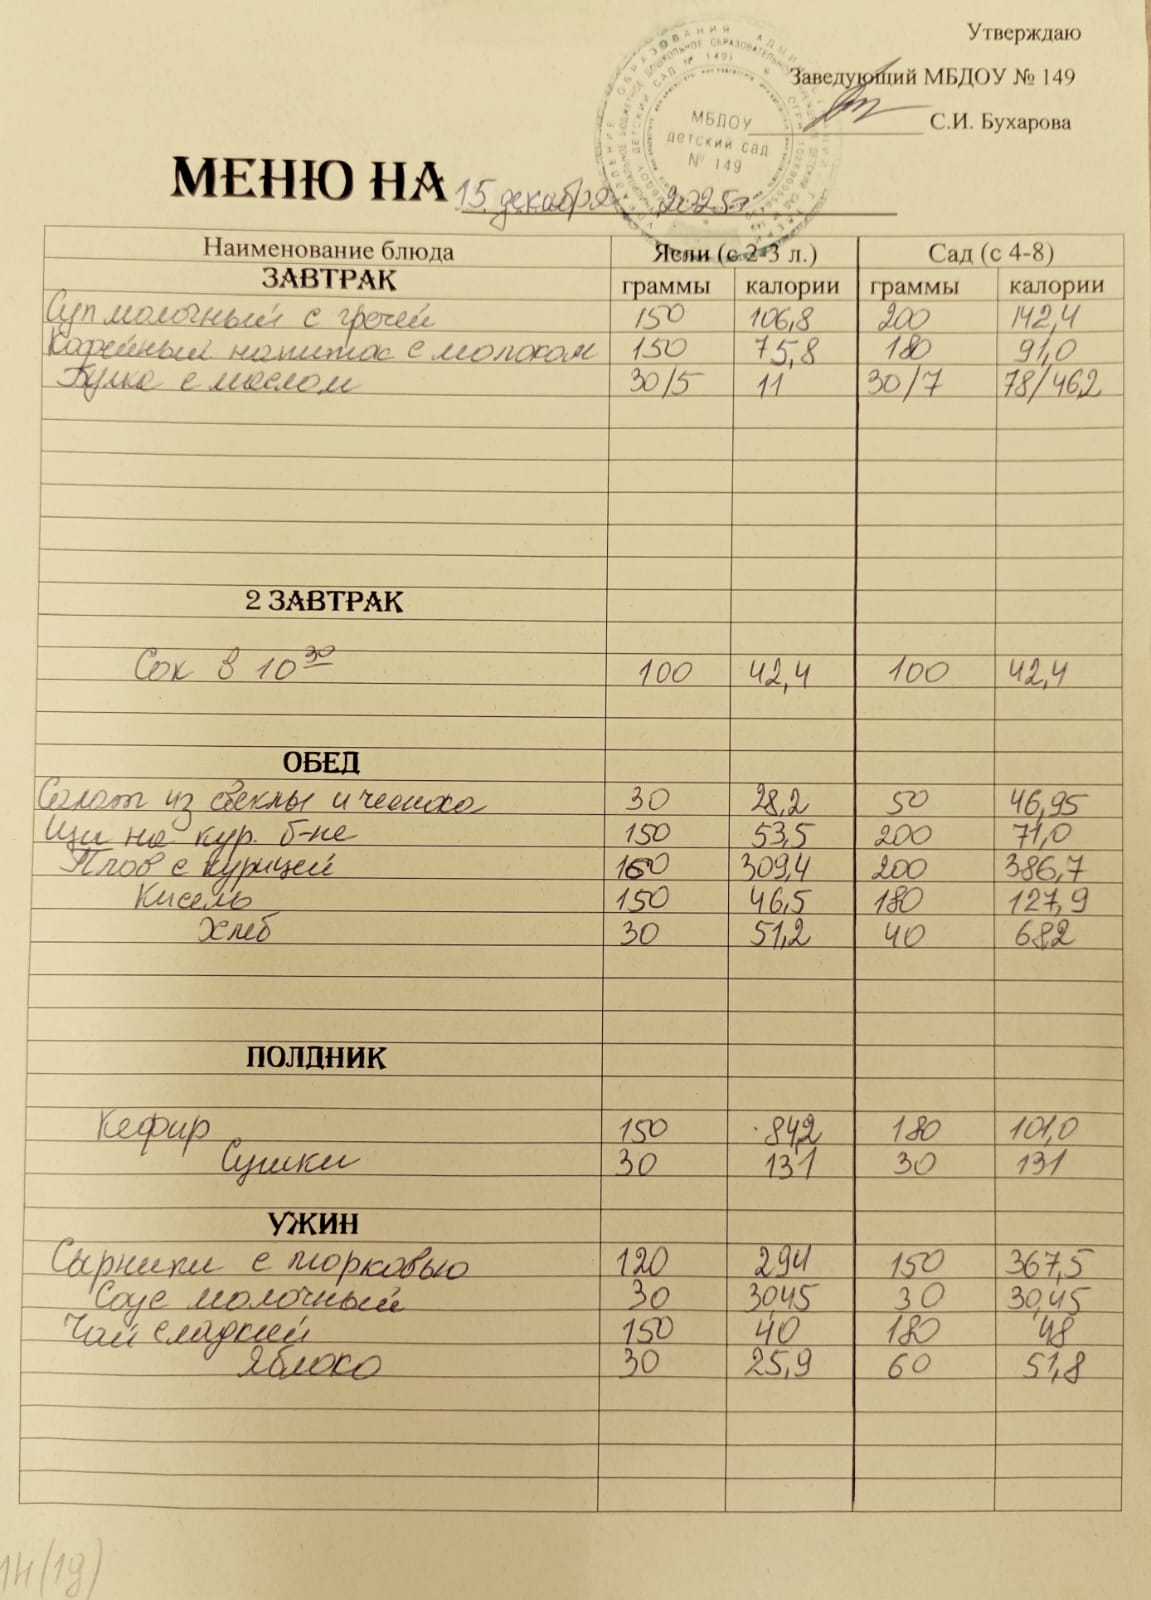 Утверждаю
Заведующий МБДОУ № 149
С.И. Бухарова
МБДОУ
детский сад
№ 149
МЕНЮ НА 15 декабря 2025г
Наименование блюда Ясли (с 2-3 л.) Сад (с 4-8)
ЗАВТРАК граммы калории граммы калории
Суп молочный с гречей 150 106,8 200 142,4
Кофейный напиток с молоком 150 75,8 180 91,0
Булка с маслом 30/5 11 30/7 78/46,2
2 ЗАВТРАК
Сок в 10 30 100 42,4 100 42,4
ОБЕД
Салат из свеклы и чеснока 30 28,2 50 46,95
Щи на кур. б-не 150 53,5 200 71,0
Плов с курицей 160 309,4 200 386,7
Кисель 150 46,5 180 127,9
Хлеб 30 51,2 40 68,2
ПОЛДНИК
Кефир 150 84,2 180 101,0
Сушки 30 131 30 131
УЖИН
Сырники с морковью 120 294 150 367,5
Соус молочный 30 30,45 30 30,45
Чай сладкий 150 40 180 48
Яблоко 30 25,9 60 51,8